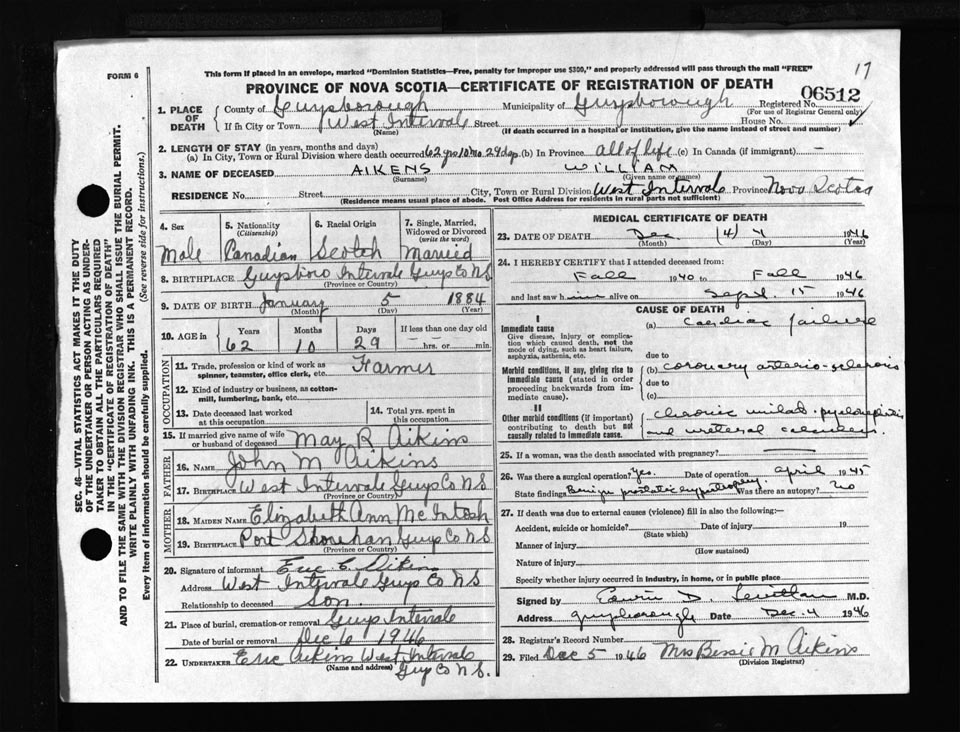 17
FORM 6
This form if placed in an envelope, marked "Dominion Statistics—Free, penalty for improper use $300," and properly addressed will pass through the mail "FREE"
PROVINCE OF NOVA SCOTIA—CERTIFICATE OF REGISTRATION OF DEATH
06512
1. PLACE OF DEATH { County of Guysborough Municipality of Guysborough Registered No.
(For use of Registrar General only)
If in City or Town West Intervale Street House No.
(Name) (If death occurred in a hospital or institution, give the name instead of street and number)
2. LENGTH OF STAY (in years, months and days)
(a) In City, Town or Rural Division where death occurred 62 yrs 10 mo 29 days (b) In Province all of life (c) In Canada (if immigrant) —
3. NAME OF DECEASED AIKENS WILLIAM
(Surname) (Given name or names)
RESIDENCE No. Street City, Town or Rural Division West Intervale Province Nova Scotia
(Residence means usual place of abode. Post Office Address for residents in rural parts not sufficient)
4. Sex Male
5. Nationality (Citizenship) Canadian
6. Racial Origin Scotch
7. Single, Married, Widowed or Divorced (write the word) Married
8. BIRTHPLACE Guysboro Intervale Guys Co N S
(Province or Country)
9. DATE OF BIRTH January 5 1884
(Month) (Day) (Year)
10. AGE in Years Months Days If less than one day old
62 10 29 hrs. or min.
OCCUPATION
11. Trade, profession or kind of work as spinner, teamster, office clerk, etc. Farmer
12. Kind of industry or business, as cotton-mill, lumbering, bank, etc.
13. Date deceased last worked at this occupation
14. Total yrs. spent in this occupation
15. If married give name of wife or husband of deceased May R Aikins
FATHER
16. NAME John M Aikins
17. BIRTHPLACE West Intervale Guys Co N S
(Province or Country)
MOTHER
18. MAIDEN NAME Elizabeth Ann McIntosh
19. BIRTHPLACE Port Shoreham Guys Co N S
(Province or Country)
20. Signature of informant Eric E. Aikins
Address West Intervale Guys Co N S
Relationship to deceased son.
21. Place of burial, cremation or removal Guys Intervale
Date of burial or removal Dec 6 1946
22. UNDERTAKER Eric Aikins West Intervale
(Name and address) Guys Co N S.
MEDICAL CERTIFICATE OF DEATH
23. DATE OF DEATH Dec (4) 4 1946
(Month) (Day) (Year)
24. I HEREBY CERTIFY that I attended deceased from:
Fall 1940 to Fall 1946
and last saw him alive on Sept. 15 1946
CAUSE OF DEATH
I
Immediate cause
Give disease, injury or complication which caused death, not the mode of dying, such as heart failure, asphyxia, asthenia, etc.
(a) cardiac failure
due to
Morbid conditions, if any, giving rise to immediate cause (stated in order proceeding backwards from immediate cause).
(b) coronary arterio-sclerosis
due to
(c)
II
Other morbid conditions (if important) contributing to death but not causally related to immediate cause.
chronic unilat. pyelonephritis
and ureteral calculus.
25. If a woman, was the death associated with pregnancy? —
26. Was there a surgical operation? Yes. Date of operation april 1945
State findings Benign prostatic hypertrophy Was there an autopsy? no
27. If death was due to external causes (violence) fill in also the following:—
Accident, suicide or homicide? Date of injury 19
(State which)
Manner of injury
(How sustained)
Nature of injury
Specify whether injury occurred in industry, in home, or in public place
Signed by Edwin D. M.D.
Address guysborough Date Dec. 4 1946
28. Registrar's Record Number
29. Filed Dec 5 1946 Mrs Bessie M Aikins
(Division Registrar)
SEC. 46—VITAL STATISTICS ACT MAKES IT THE DUTY
OF THE UNDERTAKER OR PERSON ACTING AS UNDER-
TAKER TO OBTAIN ALL THE PARTICULARS REQUIRED
IN THE "CERTIFICATE OF REGISTRATION OF DEATH"
AND TO FILE THE SAME WITH THE DIVISION REGISTRAR WHO SHALL ISSUE THE BURIAL PERMIT.
WRITE PLAINLY WITH UNFADING INK. THIS IS A PERMANENT RECORD.
Every item of information should be carefully supplied. (See reverse side for instructions.)